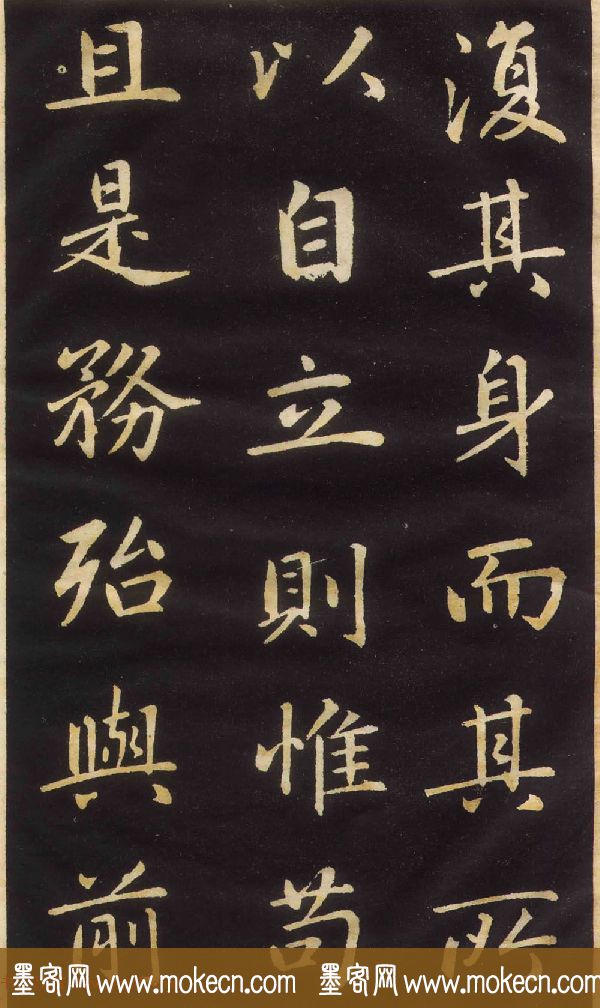 復其身而其所
以自立則惟苟
且是務殆與前
墨客网 www.mokecn.com 墨客网 www.mokecn.com